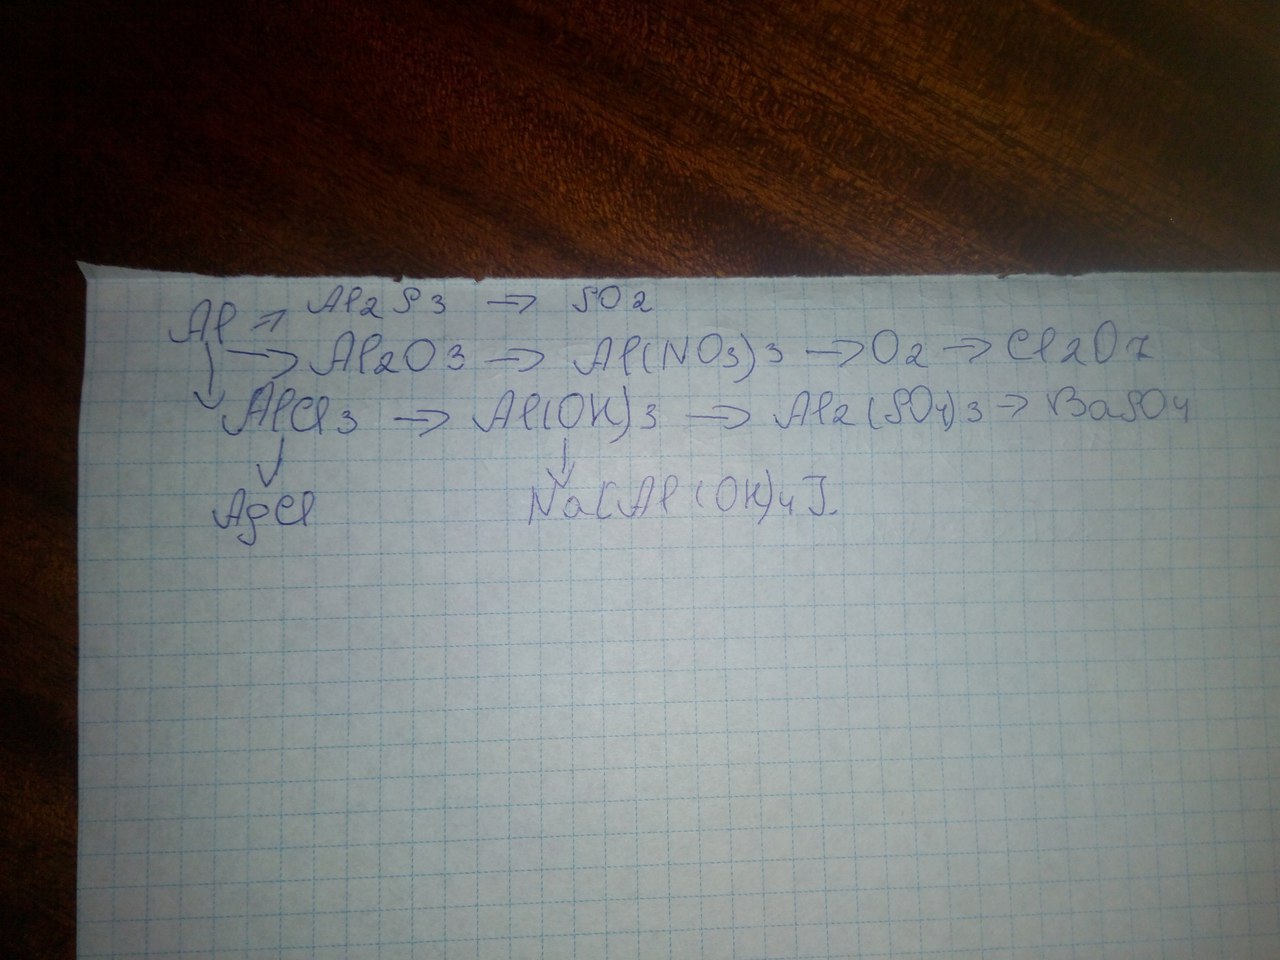 Al → Al2S3 → SO2
→ Al2O3 → Al(NO3)3 → O2 → Cl2O7
↓ AlCl3 → Al(OH)3 → Al2(SO4)3 → BaSO4
↓ ↓
AgCl Na[Al(OH)4].